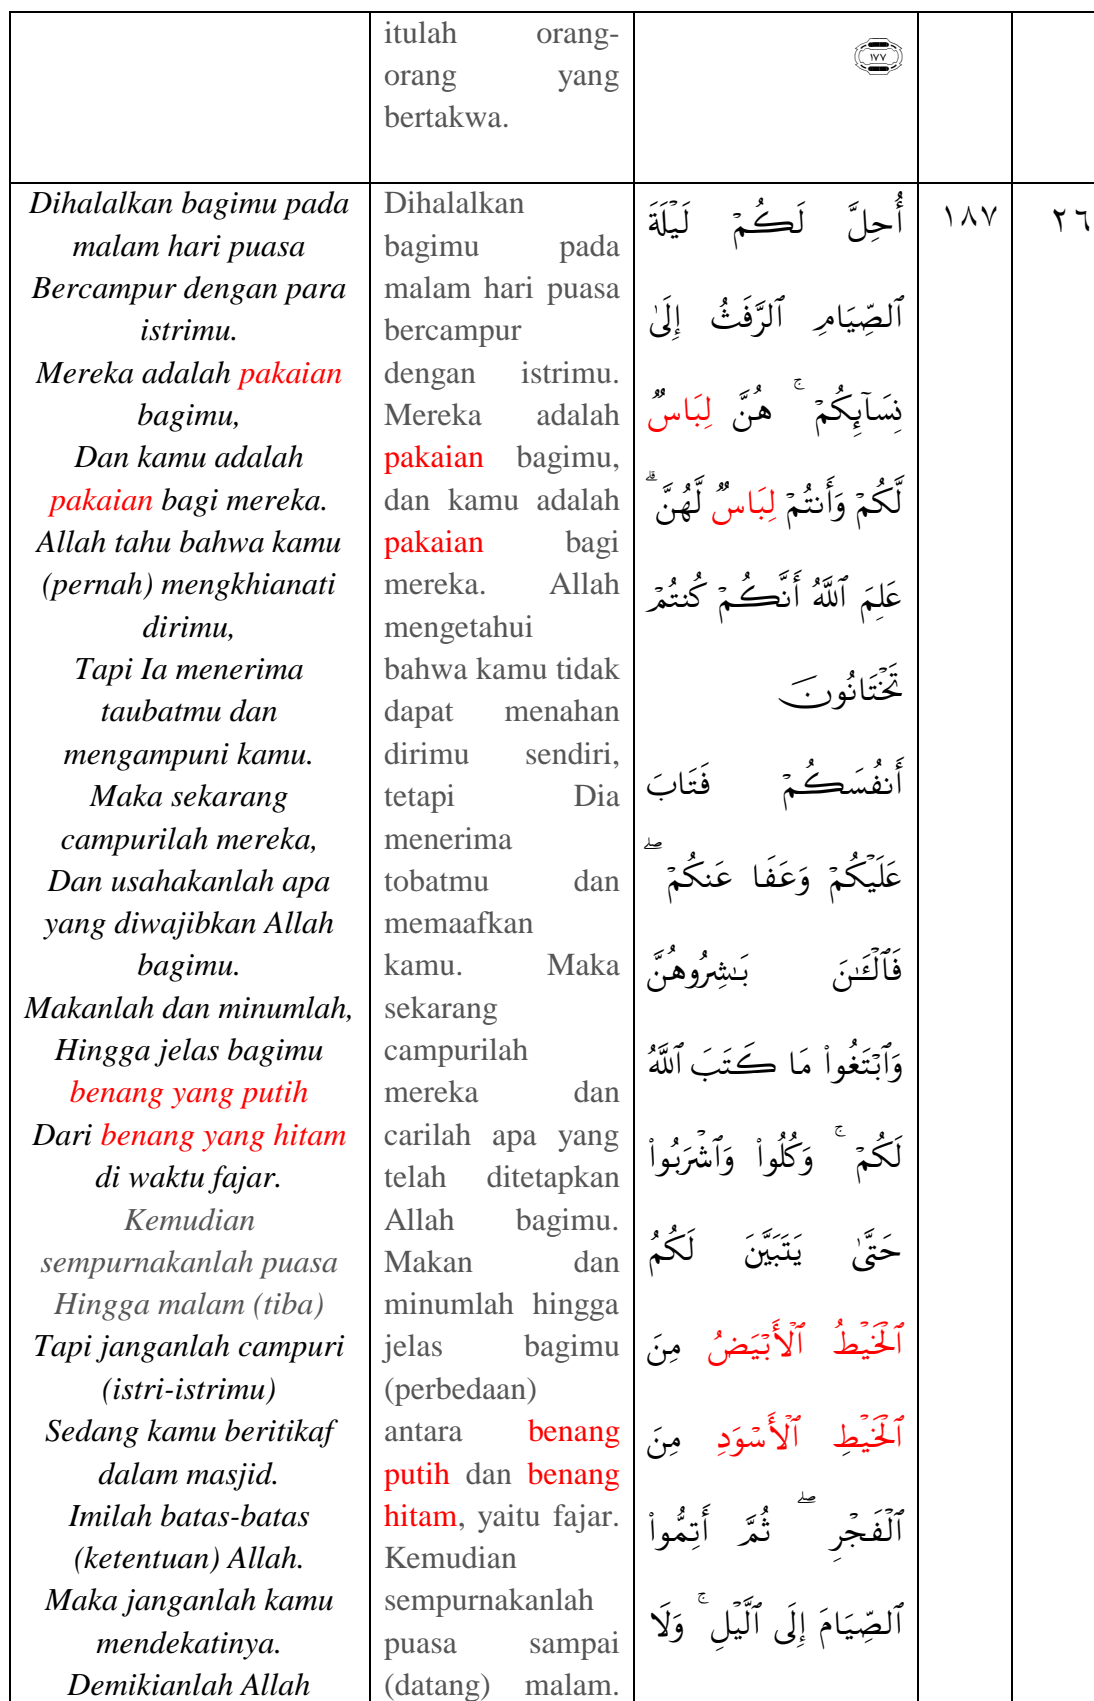 itulah orang-
orang yang
bertakwa.
١٧٧
Dihalalkan bagimu pada
malam hari puasa
Bercampur dengan para
istrimu.
Mereka adalah pakaian
bagimu,
Dan kamu adalah
pakaian bagi mereka.
Allah tahu bahwa kamu
(pernah) mengkhianati
dirimu,
Tapi Ia menerima
taubatmu dan
mengampuni kamu.
Maka sekarang
campurilah mereka,
Dan usahakanlah apa
yang diwajibkan Allah
bagimu.
Makanlah dan minumlah,
Hingga jelas bagimu
benang yang putih
Dari benang yang hitam
di waktu fajar.
Kemudian
sempurnakanlah puasa
Hingga malam (tiba)
Tapi janganlah campuri
(istri-istrimu)
Sedang kamu beritikaf
dalam masjid.
Imilah batas-batas
(ketentuan) Allah.
Maka janganlah kamu
mendekatinya.
Demikianlah Allah
Dihalalkan
bagimu pada
malam hari puasa
bercampur
dengan istrimu.
Mereka adalah
pakaian bagimu,
dan kamu adalah
pakaian bagi
mereka. Allah
mengetahui
bahwa kamu tidak
dapat menahan
dirimu sendiri,
tetapi Dia
menerima
tobatmu dan
memaafkan
kamu. Maka
sekarang
campurilah
mereka dan
carilah apa yang
telah ditetapkan
Allah bagimu.
Makan dan
minumlah hingga
jelas bagimu
(perbedaan)
antara benang
putih dan benang
hitam, yaitu fajar.
Kemudian
sempurnakanlah
puasa sampai
(datang) malam.
أُحِلَّ لَكُمۡ لَيۡلَةَ
ٱلصِّيَامِ ٱلرَّفَثُ إِلَىٰ
نِسَآئِكُمۡۚ هُنَّ لِبَاسٞ
لَّكُمۡ وَأَنتُمۡ لِبَاسٞ لَّهُنَّۗ
عَلِمَ ٱللَّهُ أَنَّكُمۡ كُنتُمۡ
تَخۡتَانُونَ
أَنفُسَكُمۡ فَتَابَ
عَلَيۡكُمۡ وَعَفَا عَنكُمۡۖ
فَٱلۡـَٰٔنَ بَٰشِرُوهُنَّ
وَٱبۡتَغُواْ مَا كَتَبَ ٱللَّهُ
لَكُمۡۚ وَكُلُواْ وَٱشۡرَبُواْ
حَتَّىٰ يَتَبَيَّنَ لَكُمُ
ٱلۡخَيۡطُ ٱلۡأَبۡيَضُ مِنَ
ٱلۡخَيۡطِ ٱلۡأَسۡوَدِ مِنَ
ٱلۡفَجۡرِۖ ثُمَّ أَتِمُّواْ
ٱلصِّيَامَ إِلَى ٱلَّيۡلِۚ وَلَا
١٨٧
٢٦